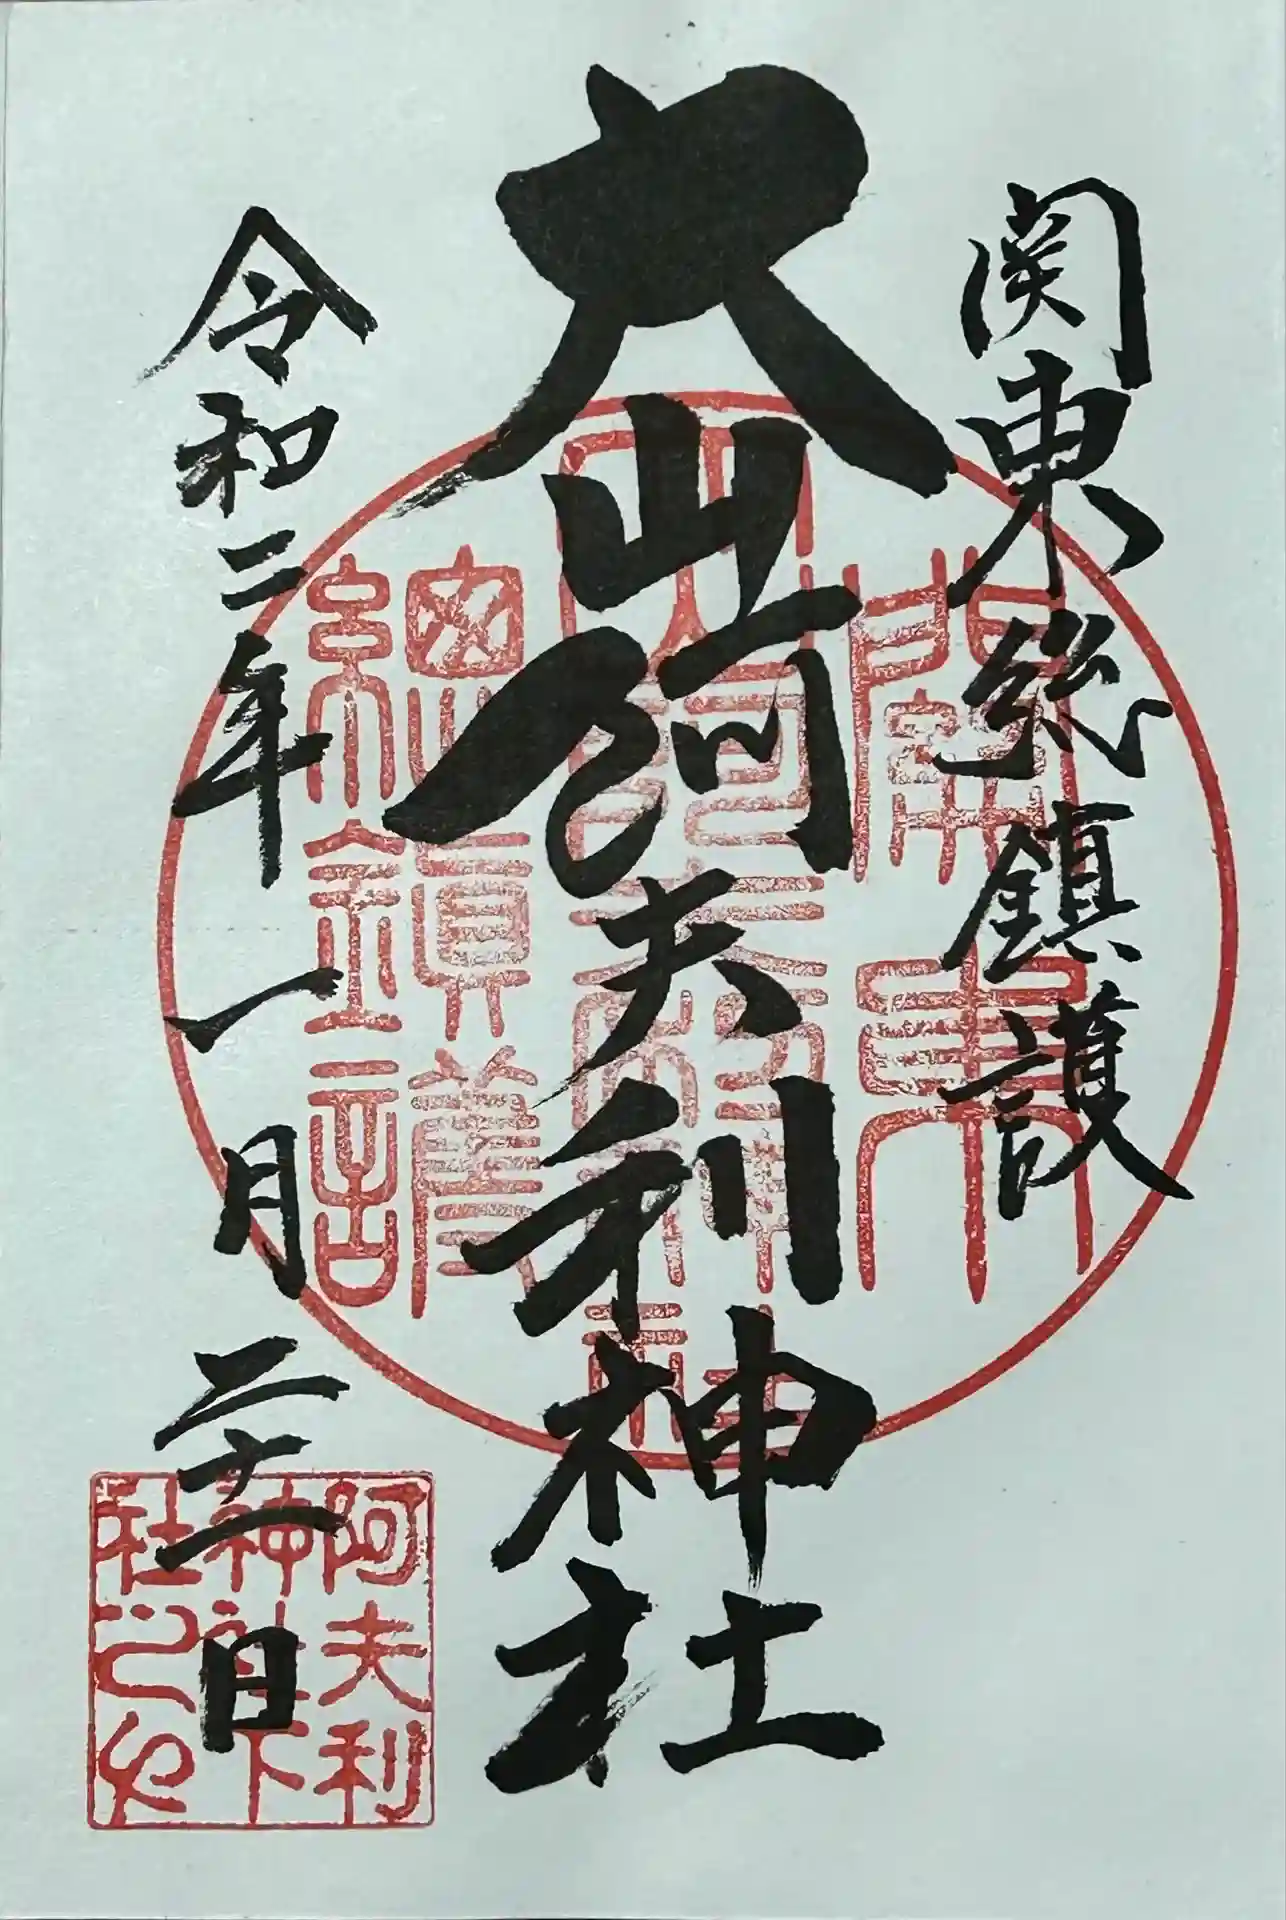 関東総鎮護
大山阿夫利神社
令和二年一月二十一日
關東
大山阿夫利神社
總鎮護
阿夫利
神社下
社之印